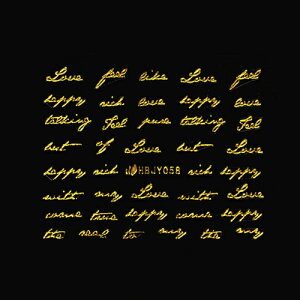 Love feel like Love feel
happy rich love happy love
talking Feel pure talking Feel
but of Love but Love
happy rich HBJY058 rich happy
with my Love with Love
come true happy come happy
the real to my the my